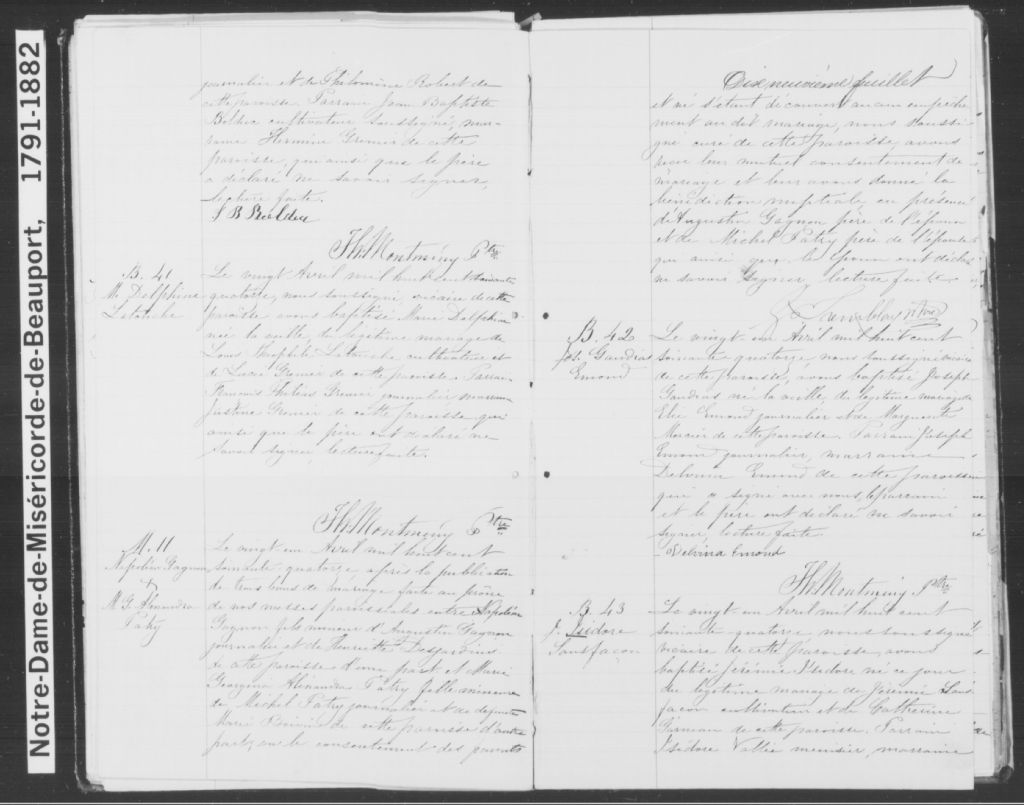 Notre-Dame-de-Miséricorde-de-Beauport, 1791-1882
journalier et de Philomine Robert de
cette paroisse. Parrain Jean Baptiste
Bolduc cultivateur soussigné, mar-
raine Hermine Grenier de cette
paroisse, qui ainsi que le père
a déclaré ne savoir signer,
lecture faite.
J B Bolduc
Th. Montminy Ptre
B. 41
M. Delphine
Letanche
Le vingt Avril mil huit cent soixante
quatorze, nous soussigné, vicaire de cette
paroisse avons baptisé Marie Delphine
née la veille du légitime mariage de
Louis Théophile Letanche cultivateur et
de Lucie Grenier de cette paroisse. Parrain
François Philéas Grenier journalier marraine
Justine Grenier de cette paroisse qui
ainsi que le père ont déclaré ne
savoir signer lecture faite.
Th. Montminy Ptre
M. 11
Napoléon Gagnon
+
M. G. Alexandra
Patry
Le vingt un Avril mil huit cent
soixante quatorze, après la publication
de trois bans de mariage faite au prône
de nos messes paroissiales entre Napoléon
Gagnon fils mineur d'Augustin Gagnon
journalier et de Henriette Desjardins
de cette paroisse d'une part et Marie
Georgina Alexandra Patry fille mineure
de Michel Patry journalier et de défunte
Marie de cette paroisse d'autre
part, avec le consentement des parents
Dixneuvième Juillet
et ne s'étant découvert aucun empêche
ment au dit mariage, nous soussi-
gné curé de cette paroisse, avons
reçu leur mutuel consentement de
mariage et leur avons donné la
bénédiction nuptiale en présence
d'Augustin Gagnon père de l'époux
et de Michel Patry père de l'épouse
qui ainsi que les époux ont déclaré
ne savoir signer, lecture faite
Tremblay Ptre
B. 42
Jos. Gaudias
Emond
Le vingt un Avril mil huit cent
soixante quatorze nous soussigné vicaire
de cette paroisse, avons baptisé Joseph
Gaudias né la veille du légitime mariage de
Elie Emond journalier et de Marguerite
Mercier de cette paroisse. Parrain Joseph
Emond journalier, marraine
Delvina Emond de cette paroisse
qui a signé avec nous, le parrain
et le père ont déclaré ne savoir
signer, lecture faite
Delvina Emond
Th. Montminy Ptre
B. 43
J. Isidore
Sansfaçon
Le vingt un Avril mil huit cent
soixante quatorze, nous soussigné
vicaire de cette paroisse, avons
baptisé Jérémie Isidore né ce jour
du légitime mariage de Jérémie Sans
façon cultivateur et de Catherine
de cette paroisse. Parrain
Isidore Vallée meunier, marraine